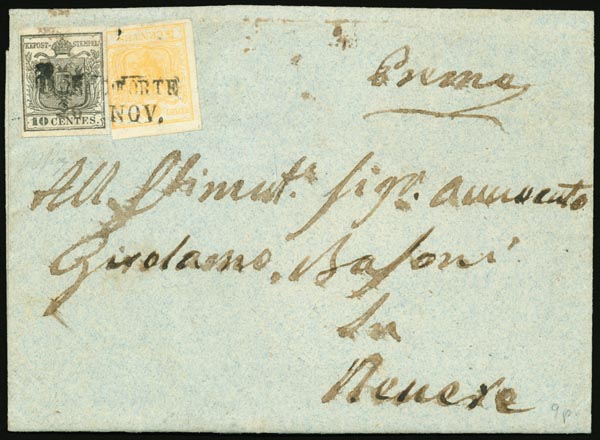 KKPOST-STEMPEL
10 CENTES.
FORTE
NOV.
All Stimat.º Sigr. Avvocato
Girolamo Basoni
In
Revere
9p.